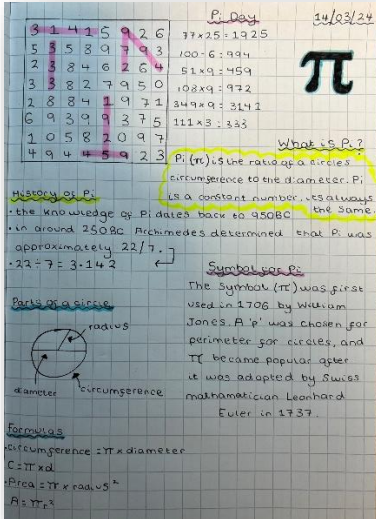 Pi Day
14/03/24
3 1 4 1 5 9 2 6
5 3 5 8 9 7 9 3
2 3 8 4 6 2 6 4
3 3 8 2 7 9 5 0
2 8 8 4 1 9 7 1
6 9 3 9 9 3 7 5
1 0 5 8 2 0 9 7
4 9 4 4 5 9 2 3
77x25=1925
100-6=994
51x9=459
108x9=972
349x9=3142
111x3=333
π
What is Pi?
Pi (π) is the ratio of a circles
circumference to the diameter. Pi
is a constant number, its always
the same.
History of Pi
• the knowledge of Pi dates back to 950BC
• in around 250BC Archimedes determined that Pi was
approximately 22/7.
• 22÷7=3.142
Symbol for Pi
The symbol (π) was first
used in 1706 by William
Jones. A 'p' was chosen for
perimeter for circles, and
π became popular after
it was adopted by Swiss
mathematician Leonhard
Euler in 1737.
Parts of a circle
radius
diameter
circumference
Formulas
• circumference = π x diameter
C=πxd
• Area = π x radius²
A=πr²